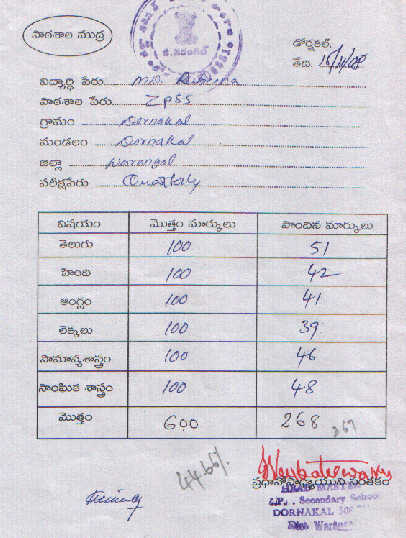 పాఠశాల ముద్ర
డోర్నకల్,
తేది. 15/11/08
విద్యార్థి పేరు MD.
పాఠశాల పేరు ZPSS
గ్రామం Dornakal
మండలం Dornakal
జిల్లా Warangal
పరీక్షపేరు Quarterly
విషయం మొత్తం మార్కులు పొందిన మార్కులు
తెలుగు 100 51
హింది 100 42
ఆంగ్లం 100 41
లెక్కలు 100 39
సామాన్యశాస్త్రం 100 46
సాంఘిక శాస్త్రం 100 48
మొత్తం 600 268 267
44.66%
ప్రధానోపాధ్యాయుని సంతకం
HEAD MASTER
Z.P. Secondary School
DORNAKAL
Dist. Warangal